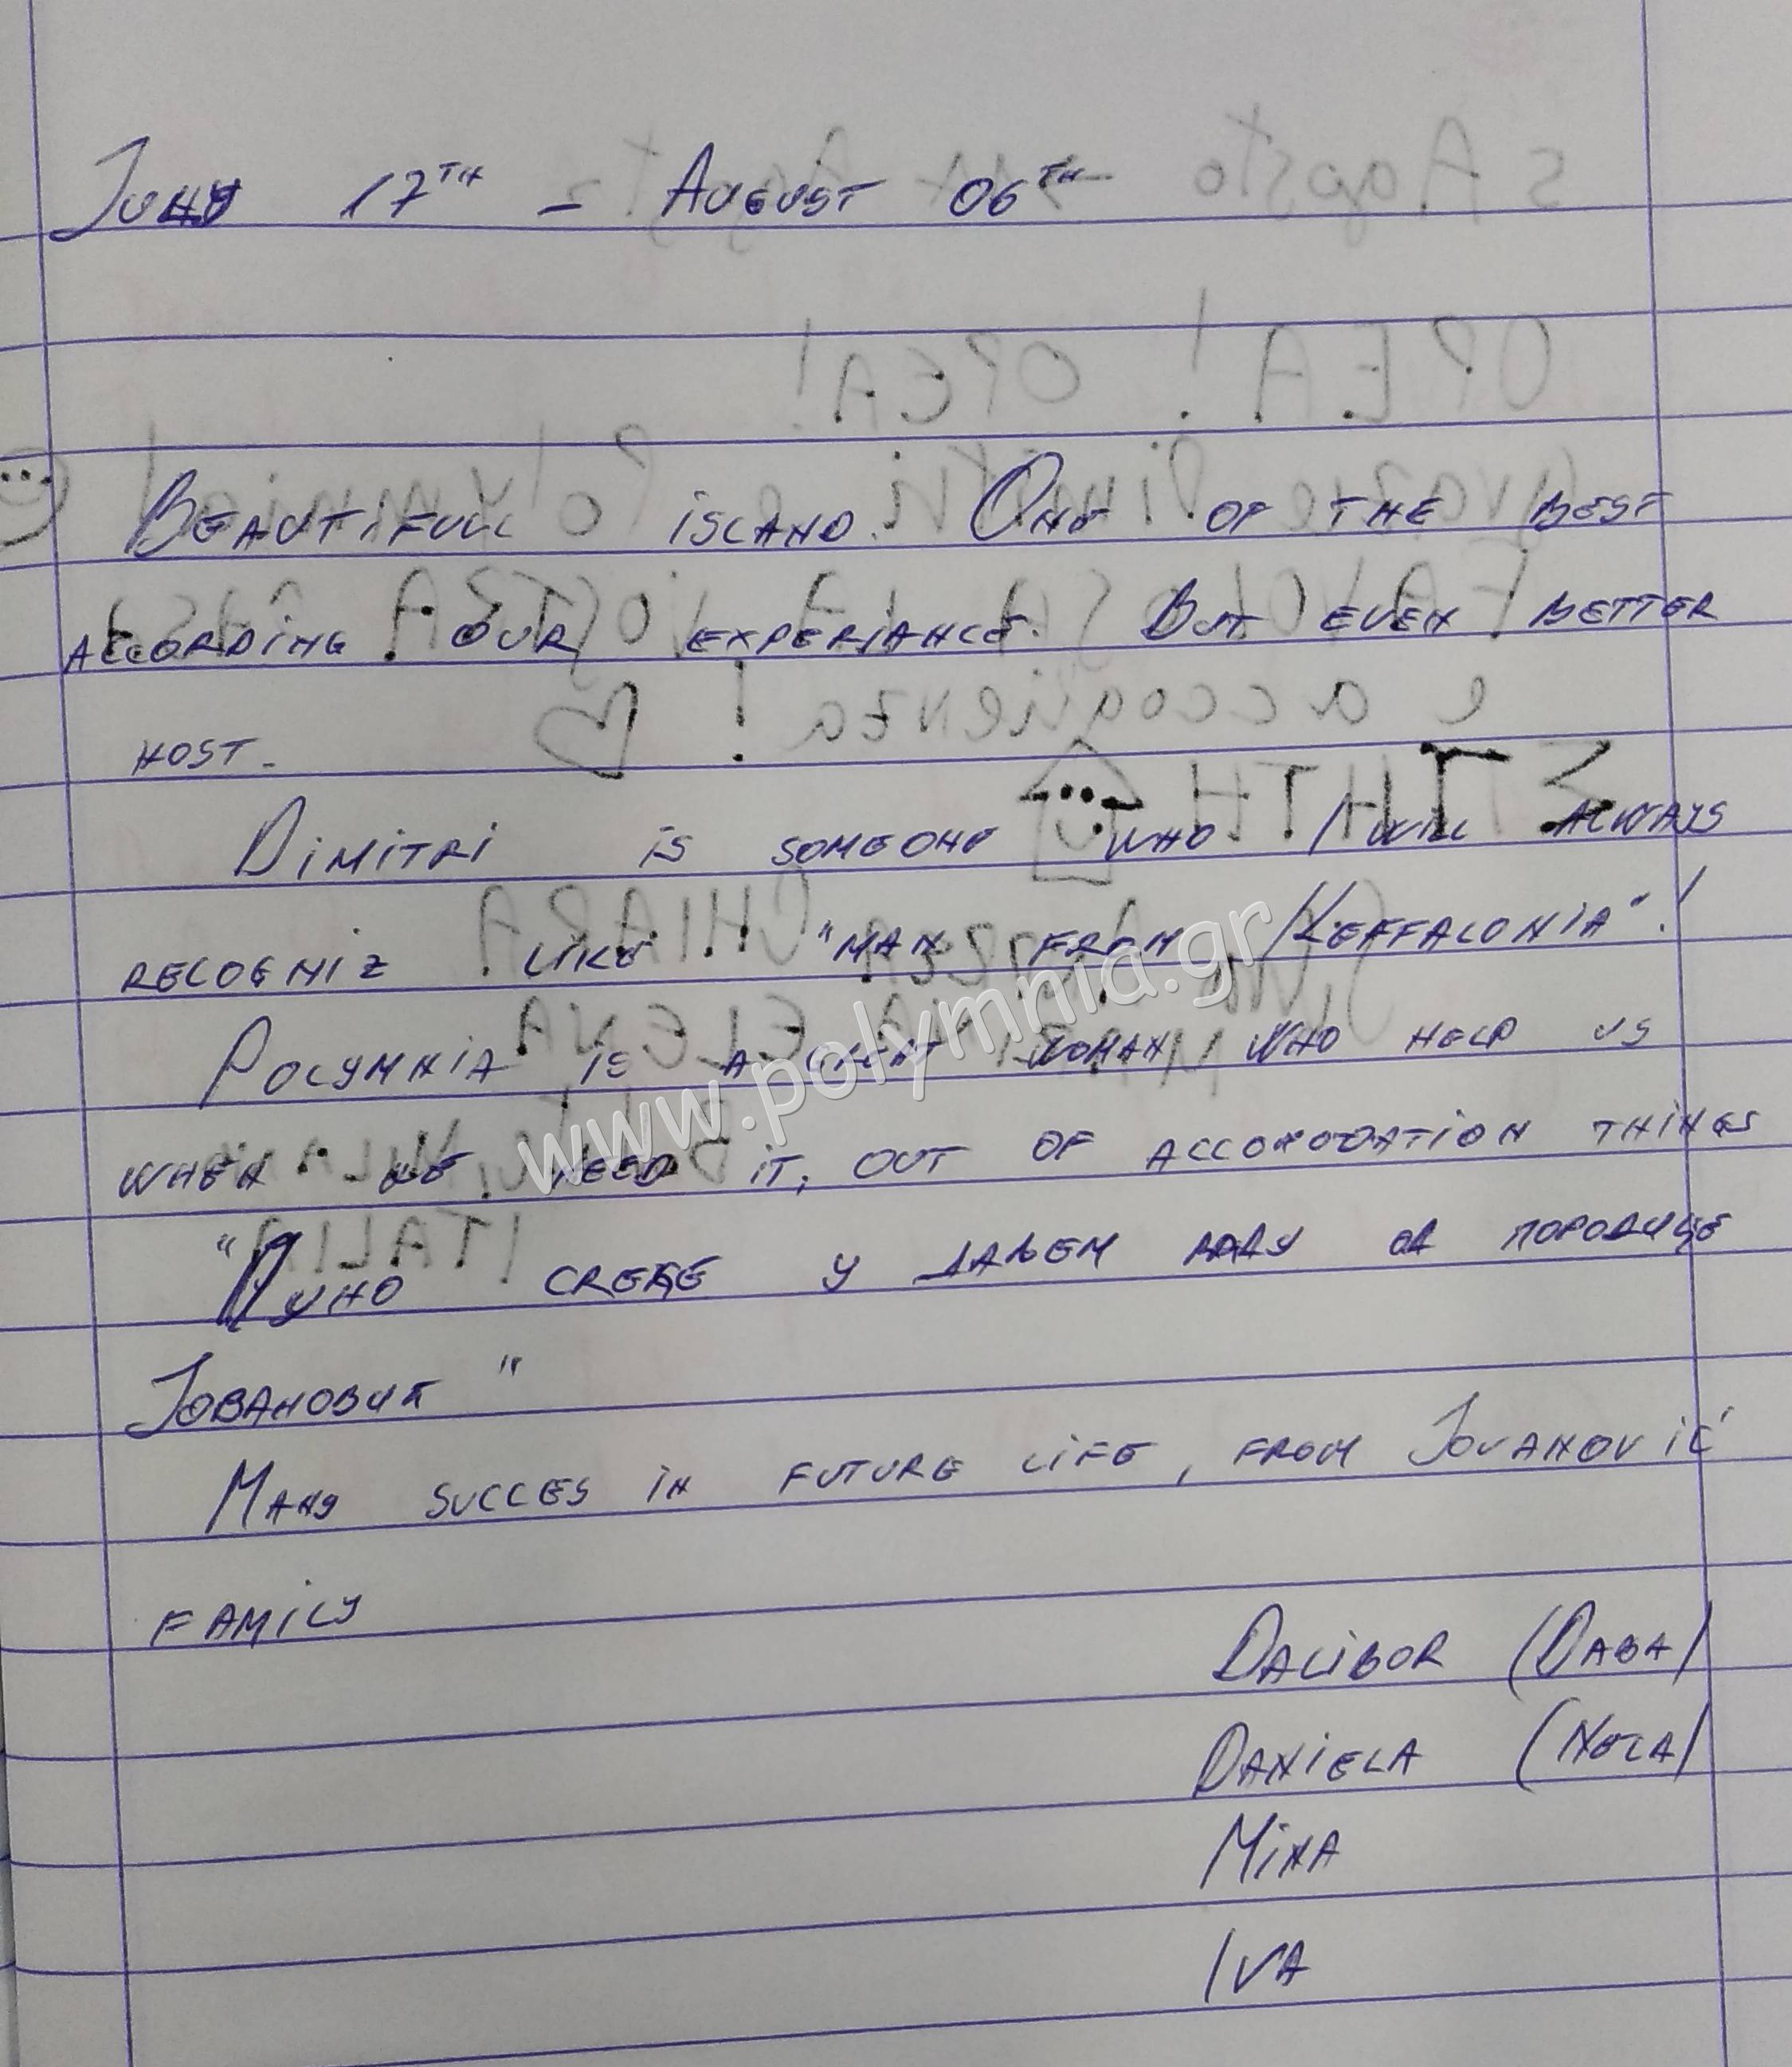 17TH - AUGUST 06TH
BEAUTIFULL ISLAND. ONE OF THE BEST
ACCORDING OUR EXPERIANCE. BUT EVEN BETTER
HOST.
DIMITRI IS SOMEONE WHO I WILL ALWAYS
RECOGNIZ LIKE "MAN FROM KEFFALONIA"!
POLYMNIA IS A GREAT WOMAN WHO HELP US
WHEN WE NEED IT, OUT OF ACCOMODATION THINGS
"ПУНО СРЕЋЕ У ДАЉЕМ РАДУ ОД ПОРОДИЦЕ
ЈОВАНОВИЋ"
MANY SUCCES IN FUTURE LIFE, FROM JOVANOVIĆ
FAMILY
DALIBOR (DABA)
DANIELA (NELA)
MINA
IVA
www.polymnia.gr